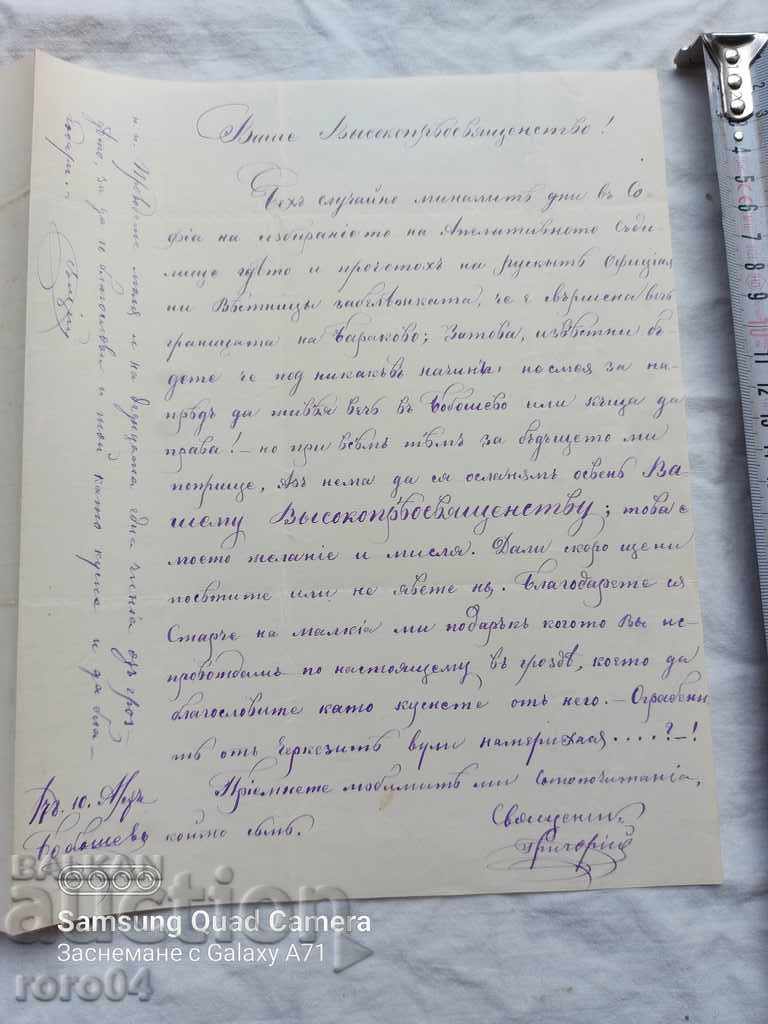 Ваше Высокопрѣосвященство!
Бехъ случайно миналитѣ дни въ Со-
фіа на избираніото на Апелативното Съди-
лище гдѣто и прочетохъ на рускытѣ Официал
ни Вѣстницы забелѣжката, че е свършена вечь
границата на Бараково; Затова, извѣстни бѫ
дете че под никакъвъ начинъ не смея за на-
прѣдъ да живѣя вечь въ Бобошево или кѫща да
права! — но при всѣмъ тѣмъ за бѫдѫщето ми
поприще, азъ нема да ся осланямъ освенъ Ва-
шему Высокопрѣосвященству; това е
моето желаніе и мисля. Дали скоро ще ни
посѣтите или не явете ны. Благодарете ся
Старче на малкіа ми подарѫкъ когото Вы ис-
провождамъ по настоящему въ гроздѣ, което да
благословите като куснете отъ него. — Ограбени
тѣ отъ Черкезитѣ вули намерихася ....?—!
Пріемнете любимитѣ ми Симопочитанія,
който съмъ.
Священи.
Григорій
10.
Бобошево
н.п. моля и на дедицата една чиніа отъ гроз-
дѣто, за да го благослови и той като кусне и да бла-
годари.
BALKAN
auction
roro04
Samsung Quad Camera
Заснемане с Galaxy A71
2
3
5
6
7
8
9
10
11
12
13
14